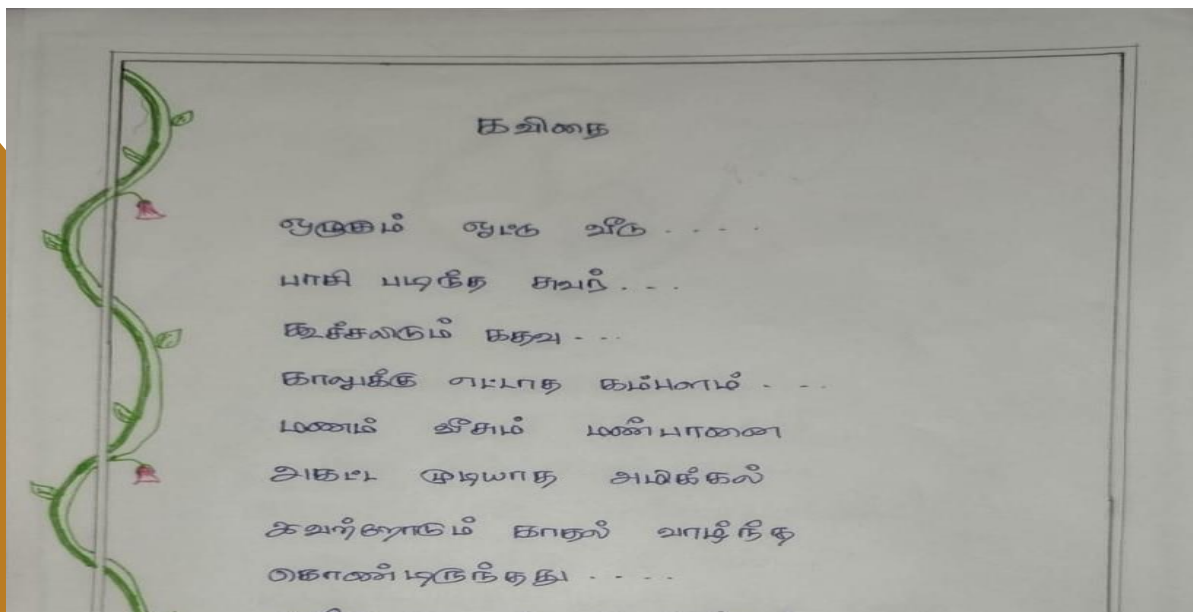 கவிதை
ஒழுகும் ஓட்டு வீடு . . . .
பாசி படிந்த சுவர் . . .
கூச்சலிடும் கதவு . . .
காலுக்கு எட்டாத கம்பளம் . . .
மணம் வீசும் மண்பானை
அகட்ட முடியாத அம்மிக்கல்
இவற்றோடும் காதல் வாழ்ந்து
கொண்டிருந்தது . . . .